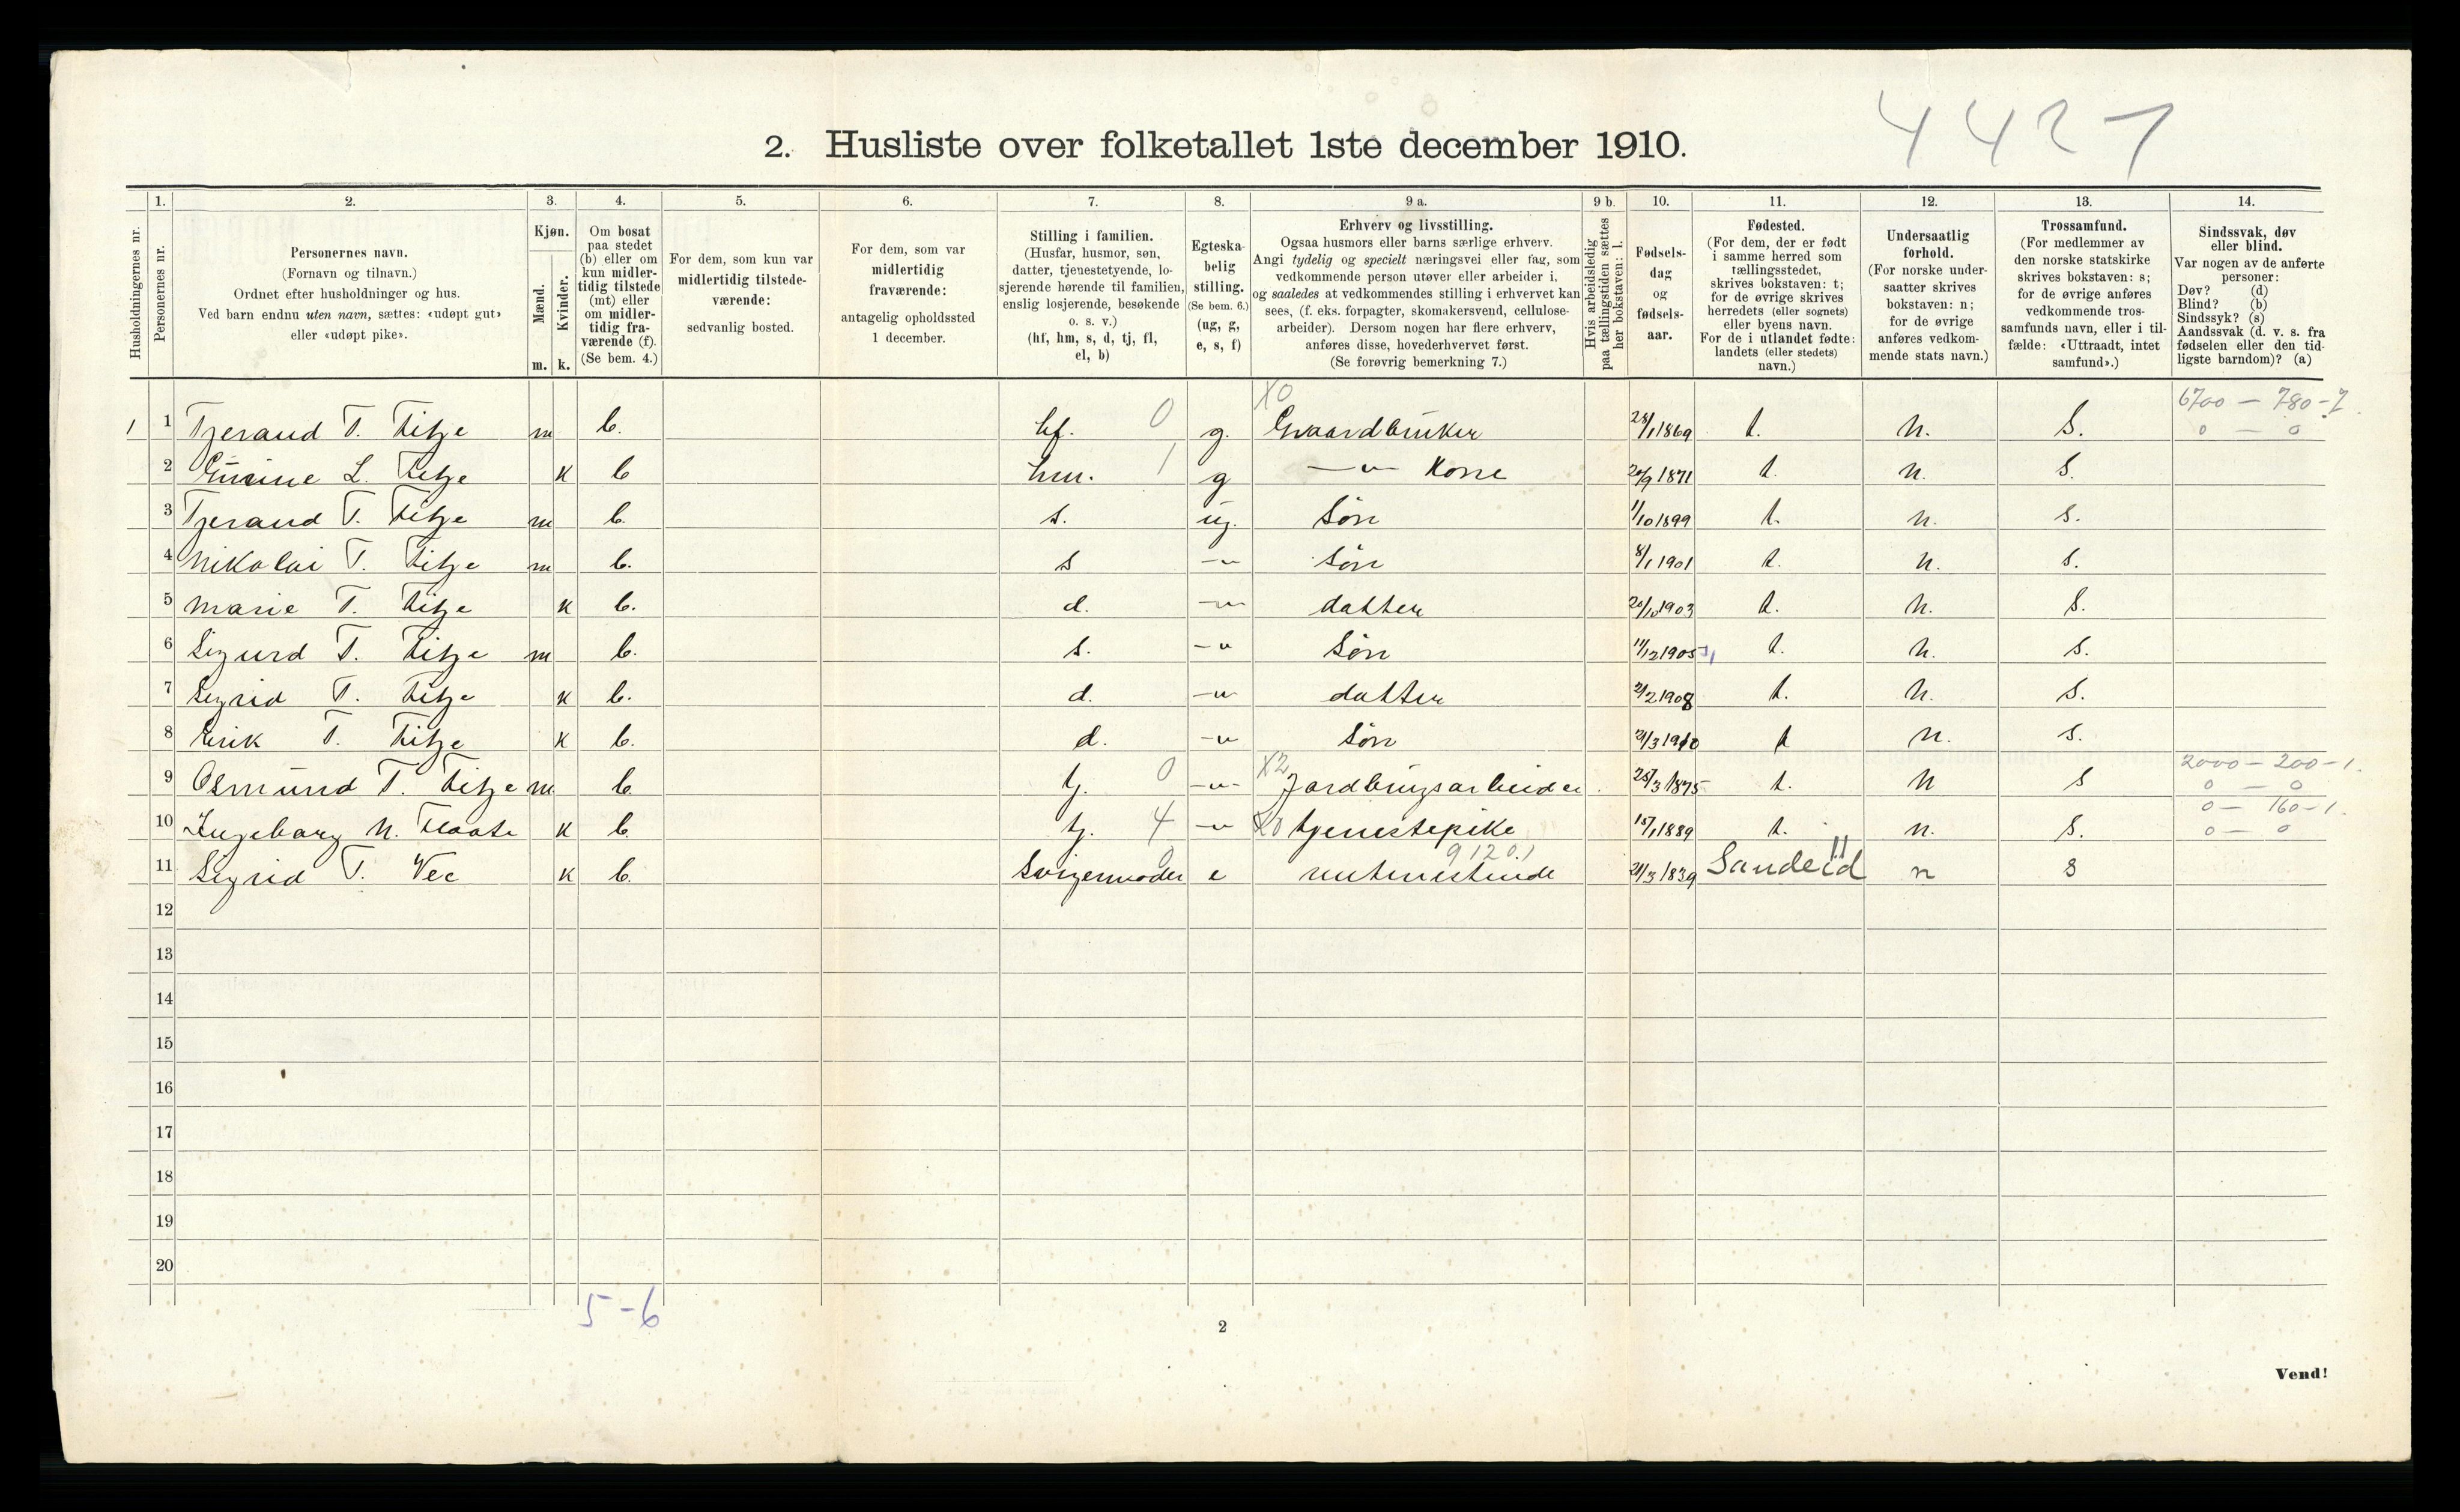 4421
2. Husliste over folketallet 1ste december 1910.
1. 2. 3. 4. 5. 6. 7. 8. 9 a. 9 b. 10. 11. 12. 13. 14.
Husholdningernes nr.
Personernes nr.
Personernes navn.
(Fornavn og tilnavn.)
Ordnet efter husholdninger og hus.
Ved barn endnu uten navn, sættes: «udøpt gut»
eller «udøpt pike».
Kjøn.
Mænd.
Kvinder.
m. k.
Om bosat
paa stedet
(b) eller om
kun midler-
tidig tilstede
(mt) eller
om midler-
tidig fra-
værende (f).
(Se bem. 4.)
For dem, som kun var
midlertidig tilstede-
værende:
sedvanlig bosted.
For dem, som var
midlertidig
fraværende:
antagelig opholdssted
1 december.
Stilling i familien.
(Husfar, husmor, søn,
datter, tjenestetyende, lo-
sjerende hørende til familien,
enslig losjerende, besøkende
o. s. v.)
(hf, hm, s, d, tj, fl,
el, b)
Egteska-
belig
stilling.
(Se bem. 6.)
(ug, g,
e, s, f)
Erhverv og livsstilling.
Ogsaa husmors eller barns særlige erhverv.
Angi tydelig og specielt næringsvei eller fag, som
vedkommende person utøver eller arbeider i,
og saaledes at vedkommendes stilling i erhvervet kan
sees, (f. eks. forpagter, skomakersvend, cellulose-
arbeider). Dersom nogen har flere erhverv,
anføres disse, hovederhvervet først.
(Se forøvrig bemerkning 7.)
Hvis arbeidsledig
paa tællingstiden sættes
her bokstaven: l.
Fødsels-
dag
og
fødsels-
aar.
Fødested.
(For dem, der er født
i samme herred som
tællingsstedet,
skrives bokstaven: t;
for de øvrige skrives
herredets (eller sognets)
eller byens navn.
For de i utlandet fødte:
landets (eller stedets)
navn.)
Undersaatlig
forhold.
(For norske under-
saatter skrives
bokstaven: n;
for de øvrige
anføres vedkom-
mende stats navn.)
Trossamfund.
(For medlemmer av
den norske statskirke
skrives bokstaven: s;
for de øvrige anføres
vedkommende tros-
samfunds navn, eller i til-
fælde: «Uttraadt, intet
samfund».)
Sindssvak, døv
eller blind.
Var nogen av de anførte
personer:
Døv? (d)
Blind? (b)
Sindssyk? (s)
Aandssvak (d. v. s. fra
fødselen eller den tid-
ligste barndom)? (a)
X0 6700 — 780 - 7
1 1 Tjerand T. Fitje m b. hf. 0 g. Gaardbruker 28/1 1869 t. n. S. 0 — 0
2 Gurine L. Fitje k b hm. 1 g —„— Kone 20/9 1871 t. n. s.
3 Tjerand T. Fitje m b. s. ug. Søn 1/10 1899 t. n. s.
4 Nikolai T. Fitje m b. s —„ Søn 8/1 1901 t. n. s.
5 Marie T. Fitje k b. d. —„— datter 20/10 1903 t. n. s.
6 Sigurd T. Fitje m b. s. —„ Søn 11/12 1905 t. n. s.
7 Sigrid T. Fitje k b. d. —„— datter 2/2 1908 t. n. s.
8 Eirik T. Fitje k b. d. —„ Søn 21/3 1910 t n. s.
X2 2000 — 200 - 1.
9 Osmund T. Fitje m b tj. 0 —„— Jordbrugsarbeider. 25/3 1875 t. n s 0 — 0
0 — 160 - 1.
10 Ingeborg N. Flaate k b. tj. 4 —„ X0 tjenestepike 15/1 1889 t. n. s. 0 — 0
9120.1
11 Sigrid T. Vee k b. Svigermoder 0 e rentenistinde 21/3 1839 Sandeid 11 n s
12
13
14
15
16
17
18
19
20
5-6
2
Vend!